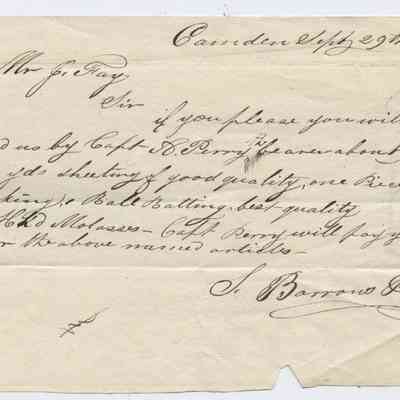 Camden Sept 29th
Mr J. Fay,
Sir
if you please you will
d us by Capt A. Perry ye bearer about
yds sheeting of good quality, one
king, 6 Ball Batting best quality
Hhd Molasses - Capt Perry will pay y
r the above named articles -
S. Barrows